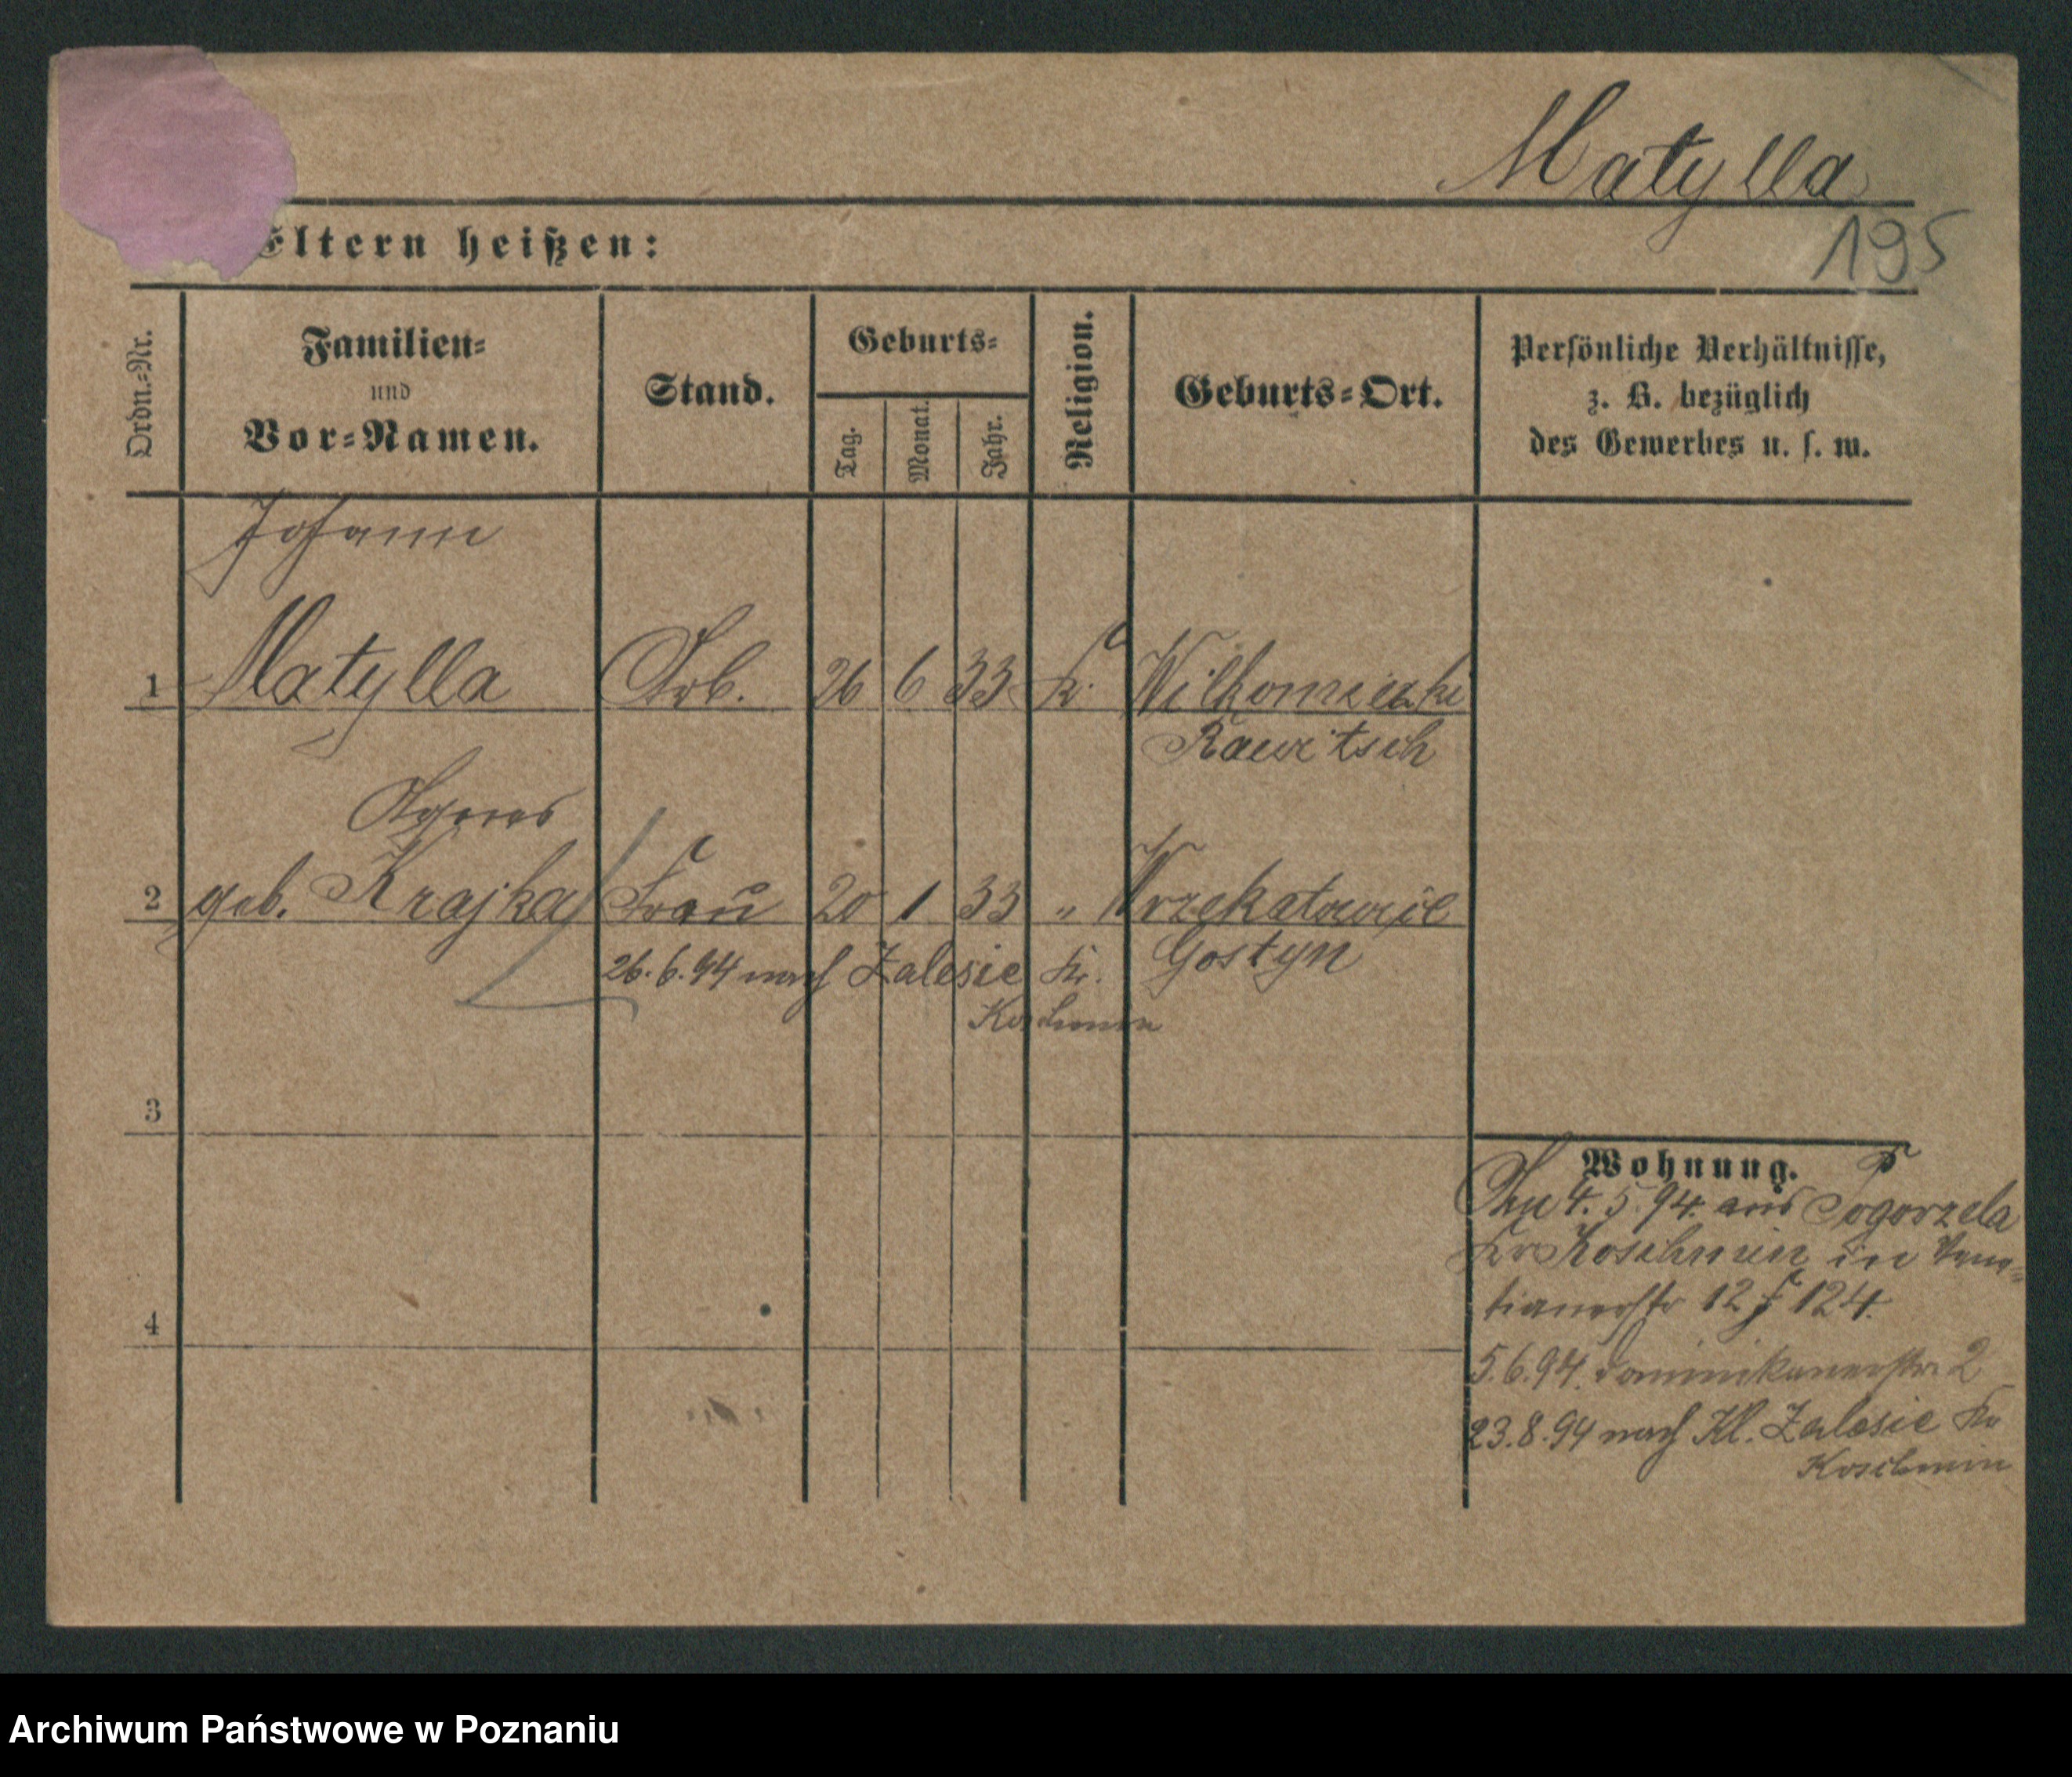 Matylla
195
Eltern heißen:
Ordn.=Nr.
Familien=
und
Vor=Namen.
Stand.
Geburts=
Tag.
Monat.
Jahr.
Religion.
Geburts=Ort.
Persönliche Verhältnisse,
z. B. bezüglich
des Gewerbes u. s. w.
Johann
1 Matylla Arb. 26 6 33 k.
Rawitsch
Agnes
2 geb. Krajka Frau 20 1 33 "
Gostyn
26.6.94 nach Zalesie Kr.
Koschmin
3
4
Wohnung.
4.5.94. aus Pogorzela
Kr Koschmin in
12 124.
5.6.94. Dominikanerstr. 2
23.8.94 nach Kl. Zalesie Kr
Koschmin
Archiwum Państwowe w Poznaniu